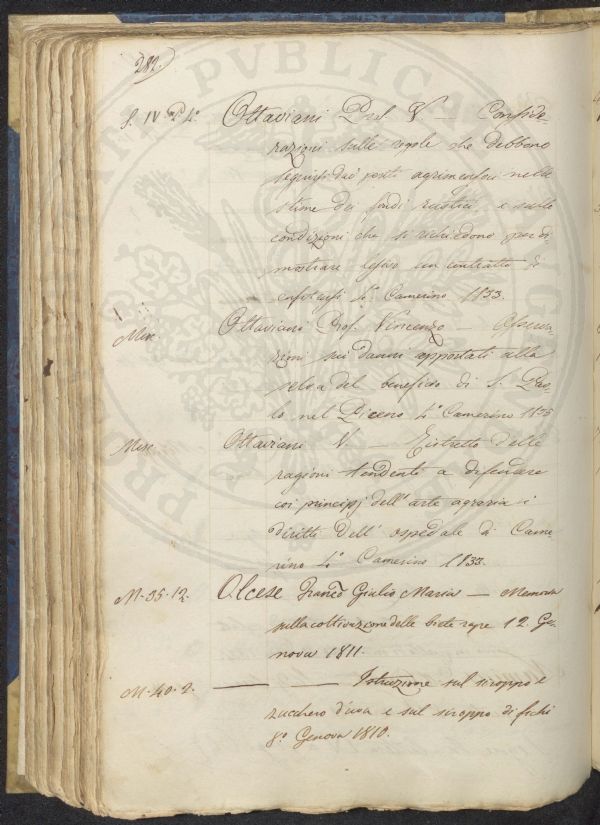 282.
S. IV. P. 4.° Ottaviani Prof. V. — Conside-
razioni sulle regole che debbono
seguirsi dai periti agrimensori nelle
stime dei fondi rustici, e sulle
condizioni che si richiedono per di-
mostrare lesivo un contratto di
4.° Camerino 1833.
Misc. Ottaviani Prof. Vincenzo — Osserva-
zioni sui danni apportati alla
selva del beneficio di S. Pao-
lo nel Piceno 4.° Camerino 1835
Misc. Ottaviani V. — Ristretto delle
ragioni tendenti a difendere
coi principj dell'arte agraria i
diritti dell'ospedale di Came-
rino 4.° Camerino 1833.
M-35-12. Olcese Franco Giulio Maria — Memoria
sulla coltivazione delle biete rape 12. Ge-
nova 1811.
M-40-2. — — Istruzione sul siroppo e
zucchero d'uva e sul siroppo di fichi
8.° Genova 1810.